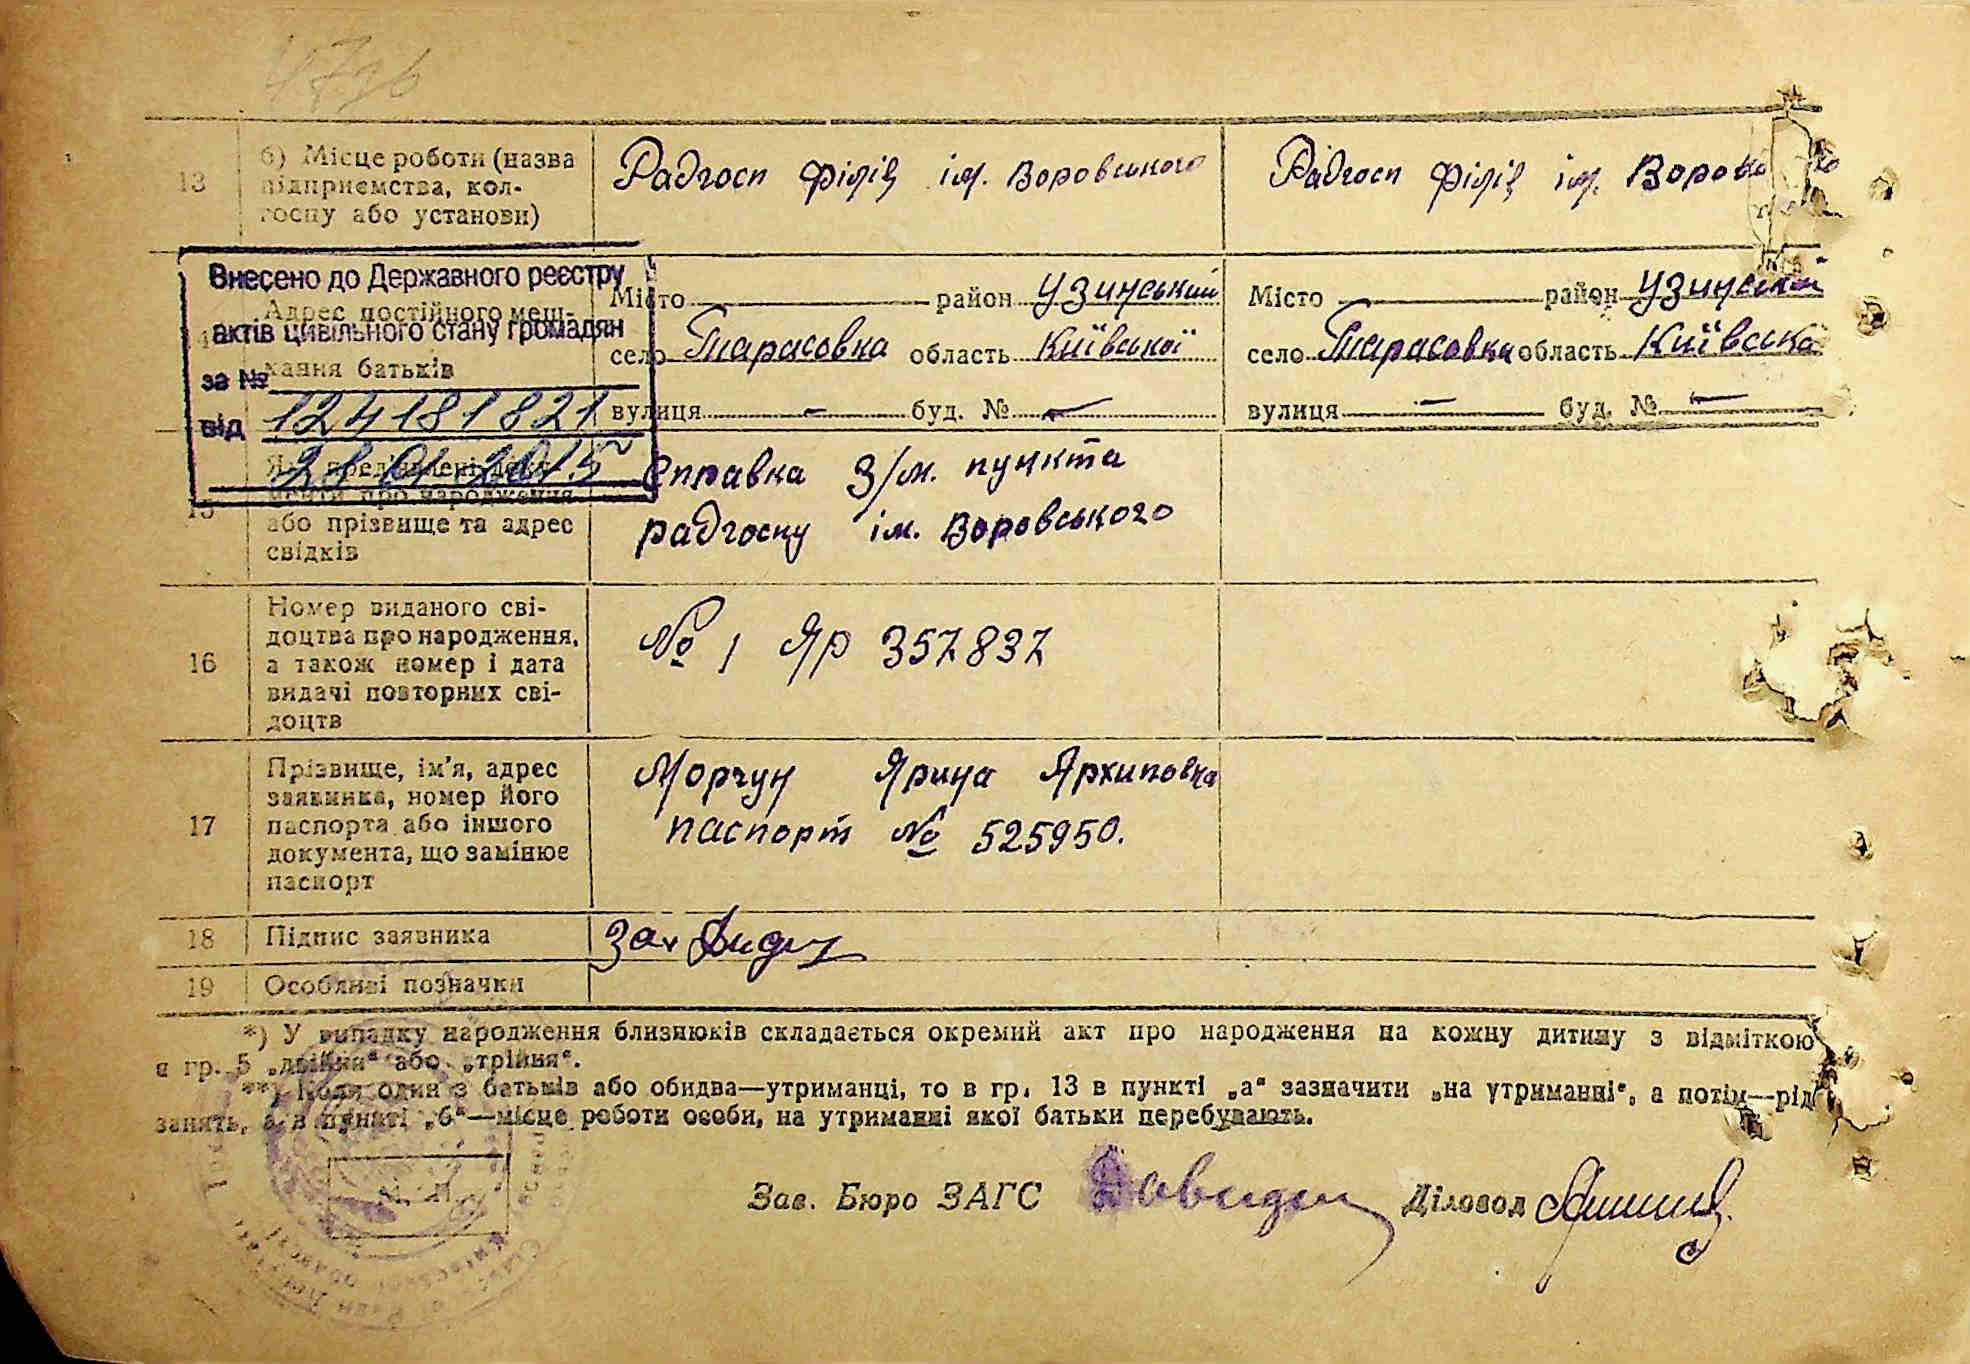 13
б) Місце роботи (назва
підприємства, кол-
госпу або установи)
Радгосп філія ім. Воровського
Радгосп філія ім.
Внесено до Державного реєстру
актів цивільного стану громадян
за №
124181821
від
28 01 2015
14
Адрес постійного меш-
кання батьків
Місто — район Узинський
село Тарасовка область Київської
вулиця — буд. № —
Місто — район Узинський
село Тарасовка область Київська
вулиця — буд. № —
15
Які пред'явлені доку-
менти про народження
або прізвище та адрес
свідків
Справка З/м. пункта
радгоспу ім. Воровського
16
Номер виданого сві-
доцтва про народження,
а також номер і дата
видачі повторних сві-
доцтв
№ 1 ЯР 357837
17
Прізвище, ім'я, адрес
заявника, номер його
паспорта або іншого
документа, що замінює
паспорт
Морчун Ярина Архиповна
паспорт № 525950.
18
Підпис заявника
19
Особливі позначки
*) У випадку народження близнюків складається окремий акт про народження на кожну дитину з відміткою
в гр. 5 „двійня“ або „трійня“.
**) Коли один з батьків або обидва—утриманці, то в гр. 13 в пункті „а“ зазначити „на утриманні“, а потім—рід
занять, а в пункті „б“—місце роботи особи, на утриманні якої батьки перебувають.
Зав. Бюро ЗАГС
Діловод